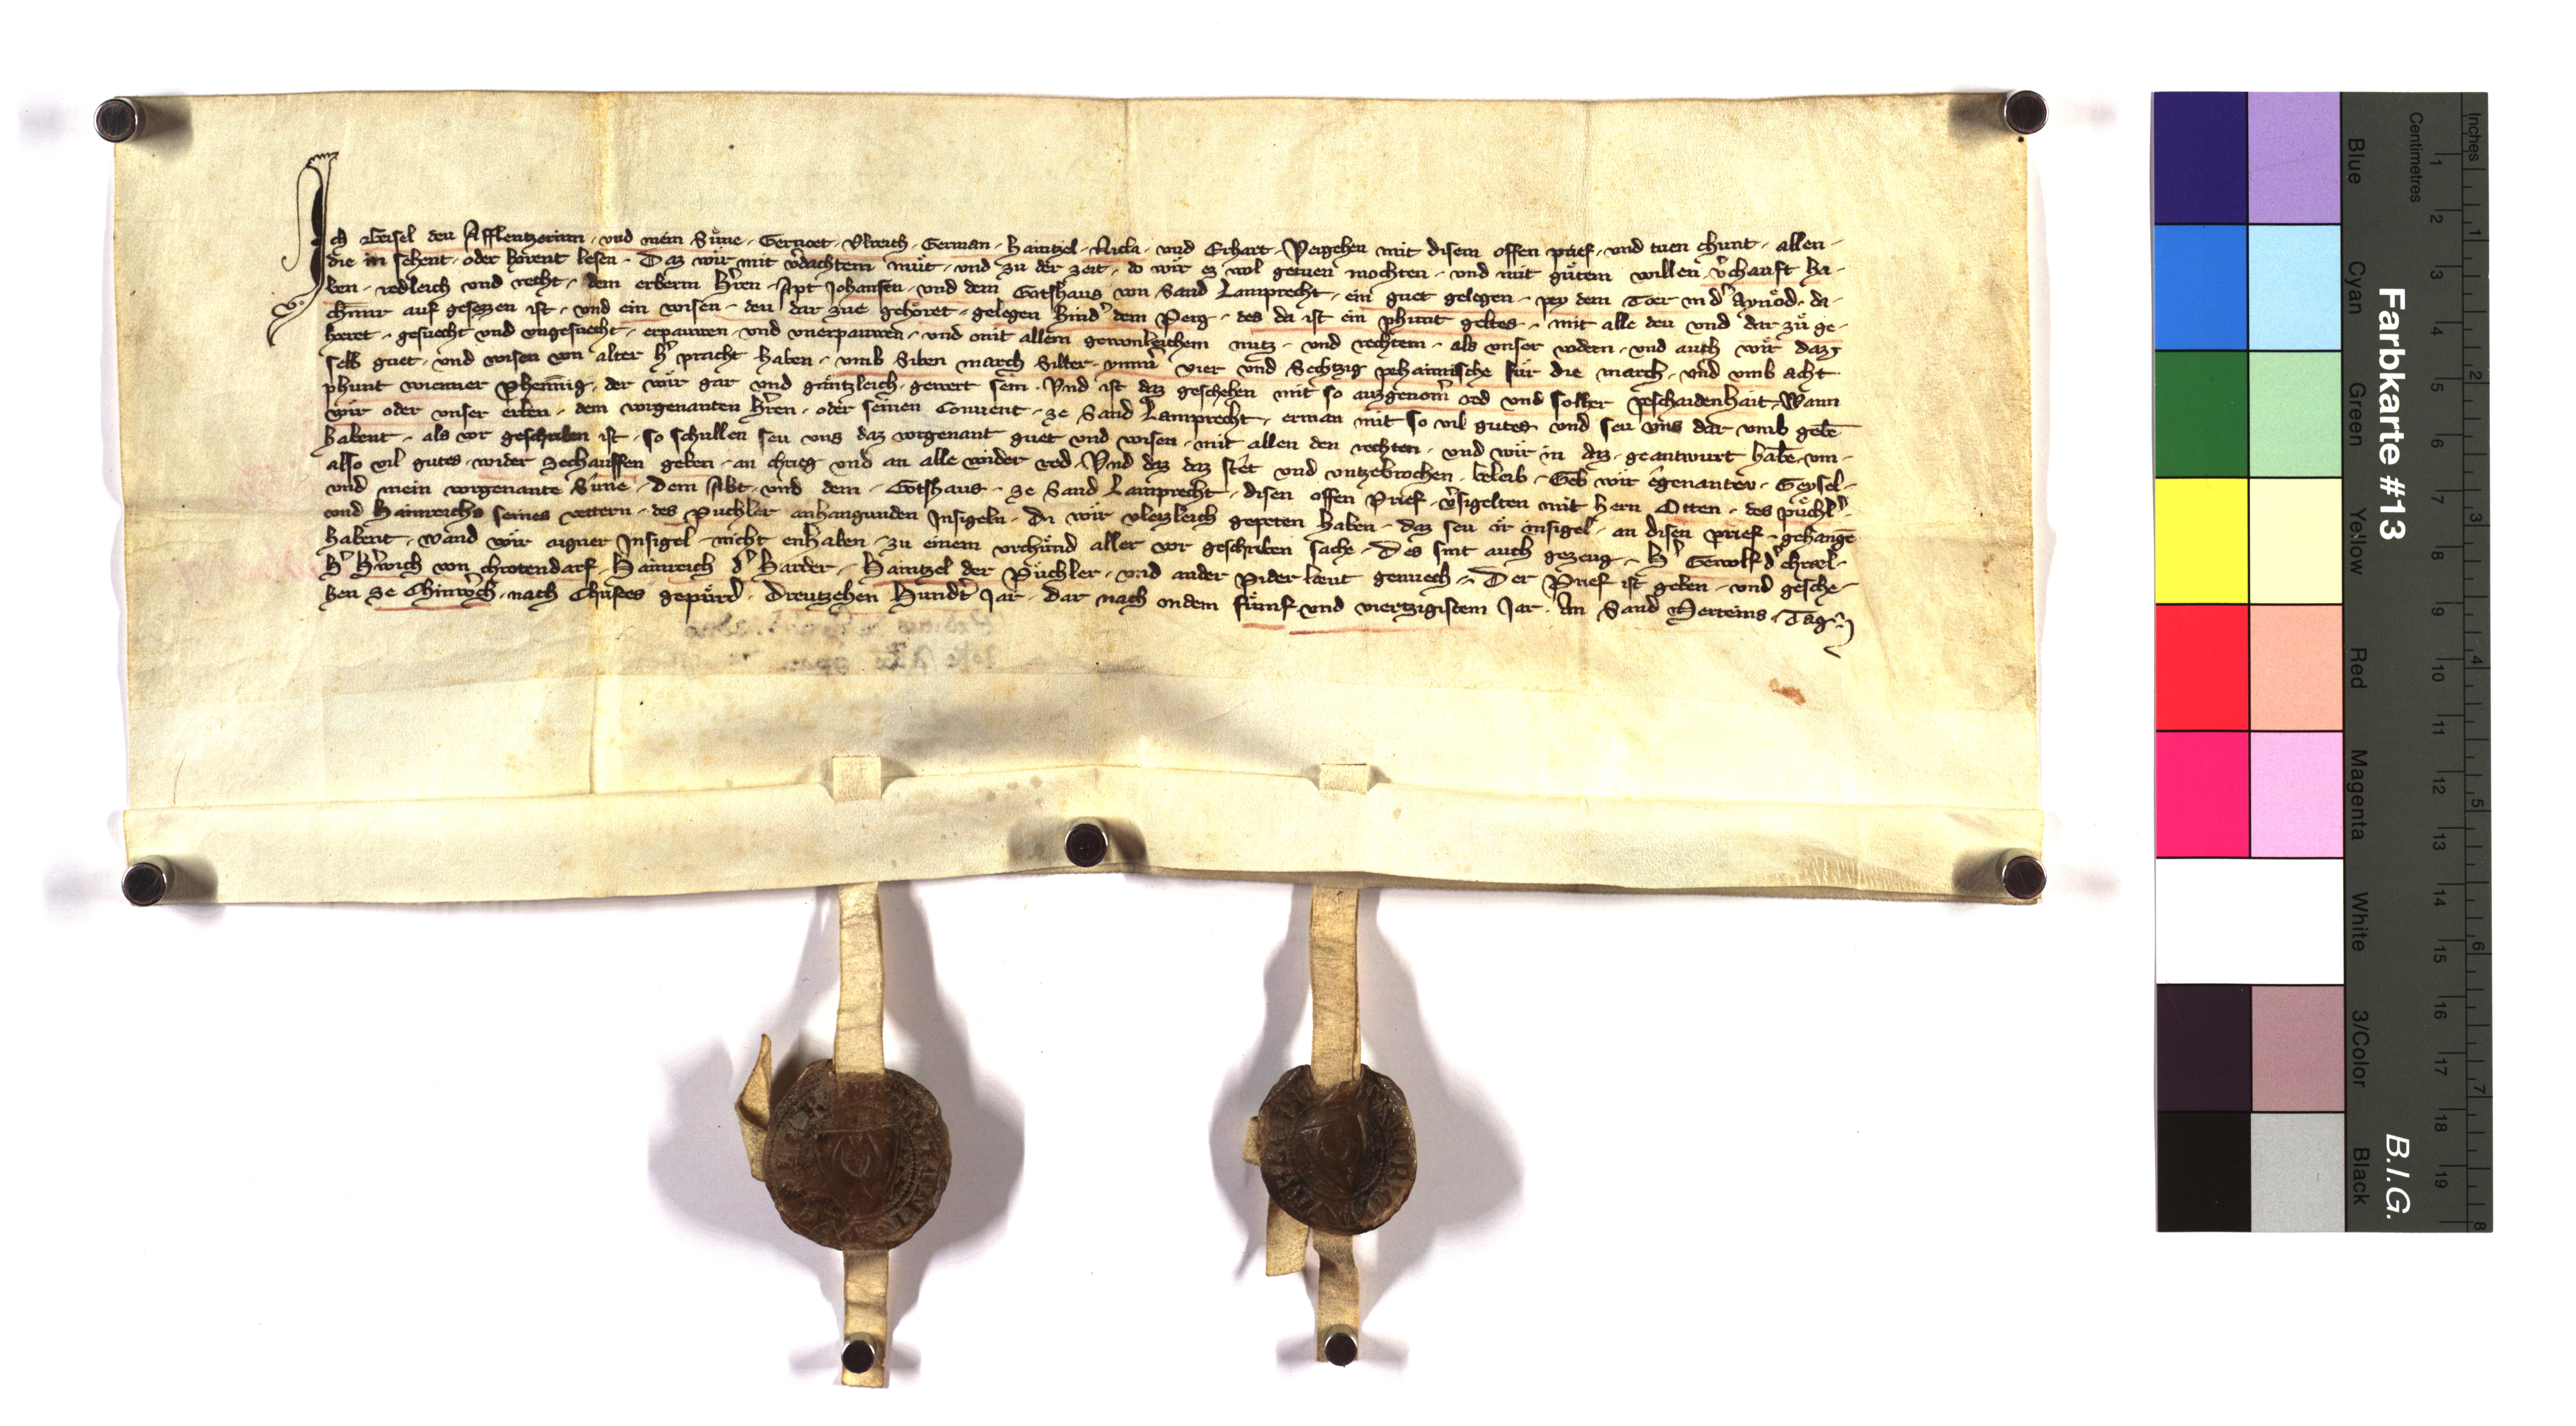 Ich Geisel deu Afflentzerinn · vnd mein Sůne · Gerwoet · Vlreich · German · Haintzel · Nicla · vnd Erhart · Vergehen mit disem offen prief · vnd tuen chunt · allen ·
die in sehent · oder horent lesen · Daz wir mit v̓dachtem můt · vnd zu der zeit · do wir ez wol getuen mochten · vnd mit gůtem willen v̓chauft ha-
ben · redleich vnd recht · dem erbern Hr̄en · Apt Johansen · vnd dem Gotshaus von Sand Lamprecht · ein guet gelegen · pey dem Toer in d̓ Aynoͤd · da ·
auf gesezzen ist · vnd ein wisen · deu dar zue gehoͤret · gelegen Hind̓ dem Perg · des da ist ein phunt geltes · mit alle deu vnd dar zů ge-
horet · gesuecht vnd vngesuecht · erpauwen · vnd vnerpauwen · vnd mit allem gewonleichem nutz · vnd rechten · als vnser vodern · vnd auch wir daz
selb guet · vnd wisen von alter h̓ pracht haben · vmb Siben march Silber · ymm̓ vier vnd Sechtzig pehaimische fuͤr die march · vnd vmb acht
phunt wienner phenning · der wir gar vnd gaͤntzleich gewert sein · Vnd ist daz geschehen mit so auzgenom̄ red vnd solher peschaidenhait · Wann
wir oder vnser erben · dem vorgenanten Hr̄en · oder seinen Conuent · ze Sand Lamprecht · erman mit so vil gutes vnd seu vns dar vmb gebē
habent · als vor geschriben ist · so schullen seu vns daz vorgenant guet vnd wisen · mit allen den rechten · vnd wir in daz · geantwurt habē · vm ·
also vil gutes · wider zechauffen geben · an chrieg vnd an alle wider red · Vnd daz daz stet vnd vntzebrochen · beleib · Geb wir egenanteu · Geysel ·
vnd mein vorgenante Sůne · dem Abt · vnd dem · Gotshaus · ze Sand Lamprecht · disen offen Prief · v̓sigelten mit hern Otten · des puͤchl̓ ·
vnd Hainreichs seines vettern · des Puchler anhangunden Insigeln · Die wir vleizleich gepeten haben · daz seu ir insigel · an disen prief · gehangē
habent · wand wir aigner Insigel · nicht enhaben · zu einem vrchuͤnd aller vor geschriben sache · Des sint auch gezeug · H̓ Gerwolf d̓
H̓ von chrotendorf · Hainreich d̓ Harder · Haintzel der Puͤchler · vnd ander pider laeut genuech · Der Prief ist geben · vnd gesche-
hen ze · nach Christes gepuͤrd · Dreutzehen Hund̓t Jar · dar nach in dem fuͤmf vnd viertzigistem Jar · An Sand Merteins · Tag ·
Farbkarte #13
B.I.G.
Inches
Centimetres
1 2 3 4 5 6 7 8
1 2 3 4 5 6 7 8 9 10 11 12 13 14 15 16 17 18 19
Blue
Cyan
Green
Yellow
Red
Magenta
White
3/Color
Black